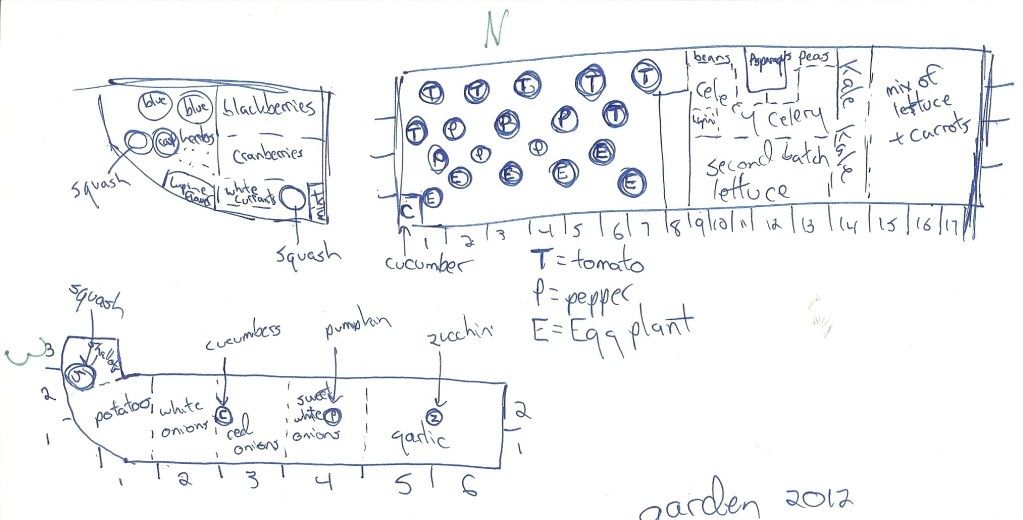 N
blue blue blackberries
herbs
cranberries
squash
lupine
white
currants
mint
squash
T T T T T
T P P P T
P P P E
E E E E
C E
cucumber
1 2 3 4 5 6 7 8 9 10 11 12 13 14 15 16 17
beans Asparagus peas
Celery
Celery
lupini
second batch
lettuce
Kale
Kale
mix of
lettuce
+ carrots
T = tomato
P = pepper
E = Egg plant
squash
cucumbers
pumpkin
zucchini
3
2
1
potatoes
white
onions
C
red
onions
sweet
white
onions
P
Z
garlic
2
1
1 2 3 4 5 6
garden 2012